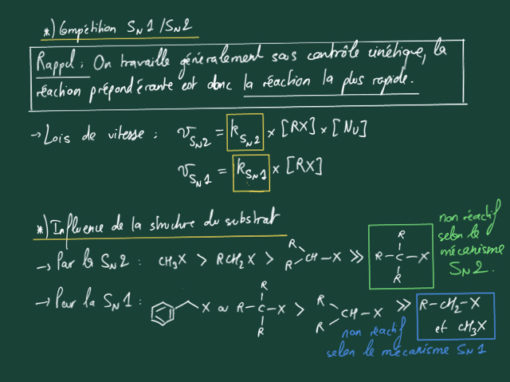 *) Compétition SN1/SN2
Rappel : On travaille généralement sous contrôle cinétique, la
réaction prépondérante est donc la réaction la plus rapide.
→ Lois de vitesse : v_SN2 = k_SN2 × [RX] × [Nu]
v_SN1 = k_SN1 × [RX]
*) Influence de la structure du substrat
non réactif
selon le
mécanisme
SN2.
→ Par la SN2 : CH3X > RCH2X > R R CH-X >> R R-C-X R
→ Pour la SN1 : X ou R-C-X R R > R R CH-X >> R-CH2-X
et CH3X
non réactif
selon le mécanisme SN1